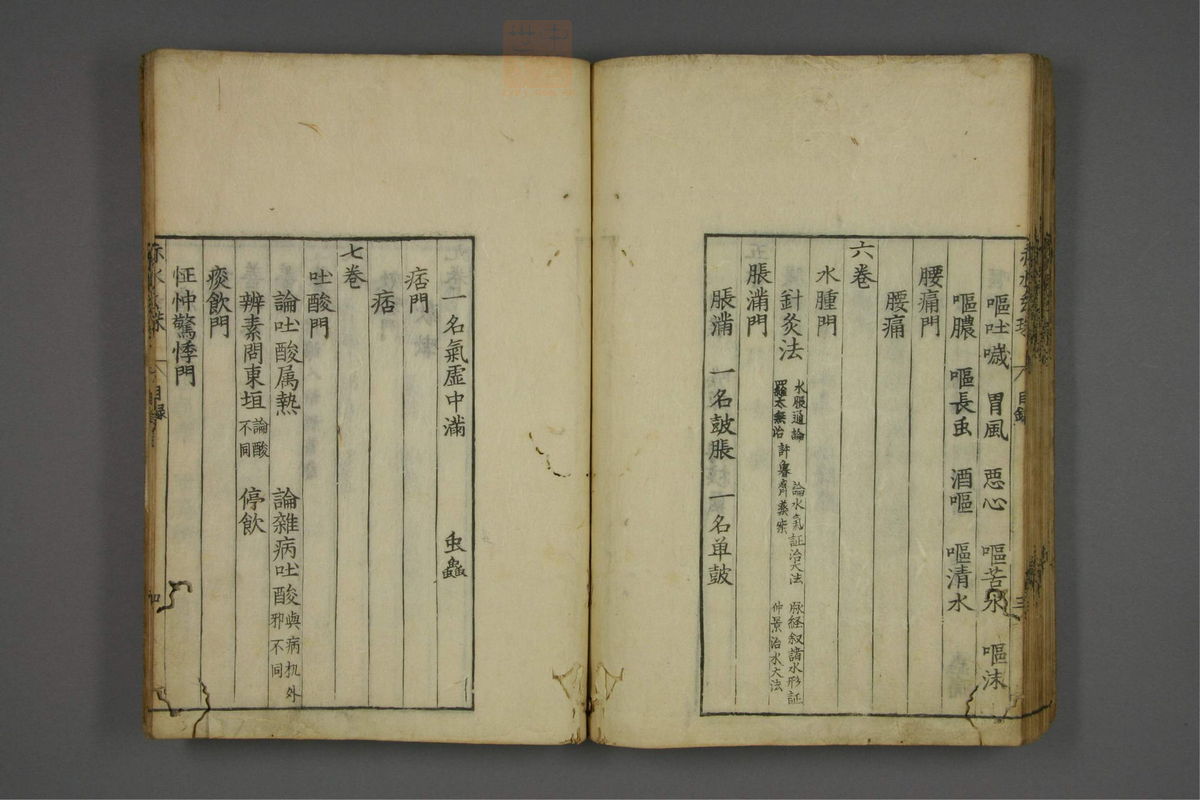 嘔吐噦　胃風　惡心　嘔苦水　嘔沫
嘔膿　嘔長虫　酒嘔　嘔清水
腰痛門
腰痛
六卷
水腫門
針灸法　水脹通論　論水氣証治大法　脉経叙諸水形証
羅太無治　許魯齋藥案　仲景治水大法
脹滿門
脹滿　一名皷脹　一名单皷
一名氣虛中滿　虫蠱
痞門
痞
七卷
吐酸門
論吐酸属熱　論雜病吐酸與病机外邪不同
辨素問東垣論酸不同　停飲
痰飲門
怔忡驚悸門
目録